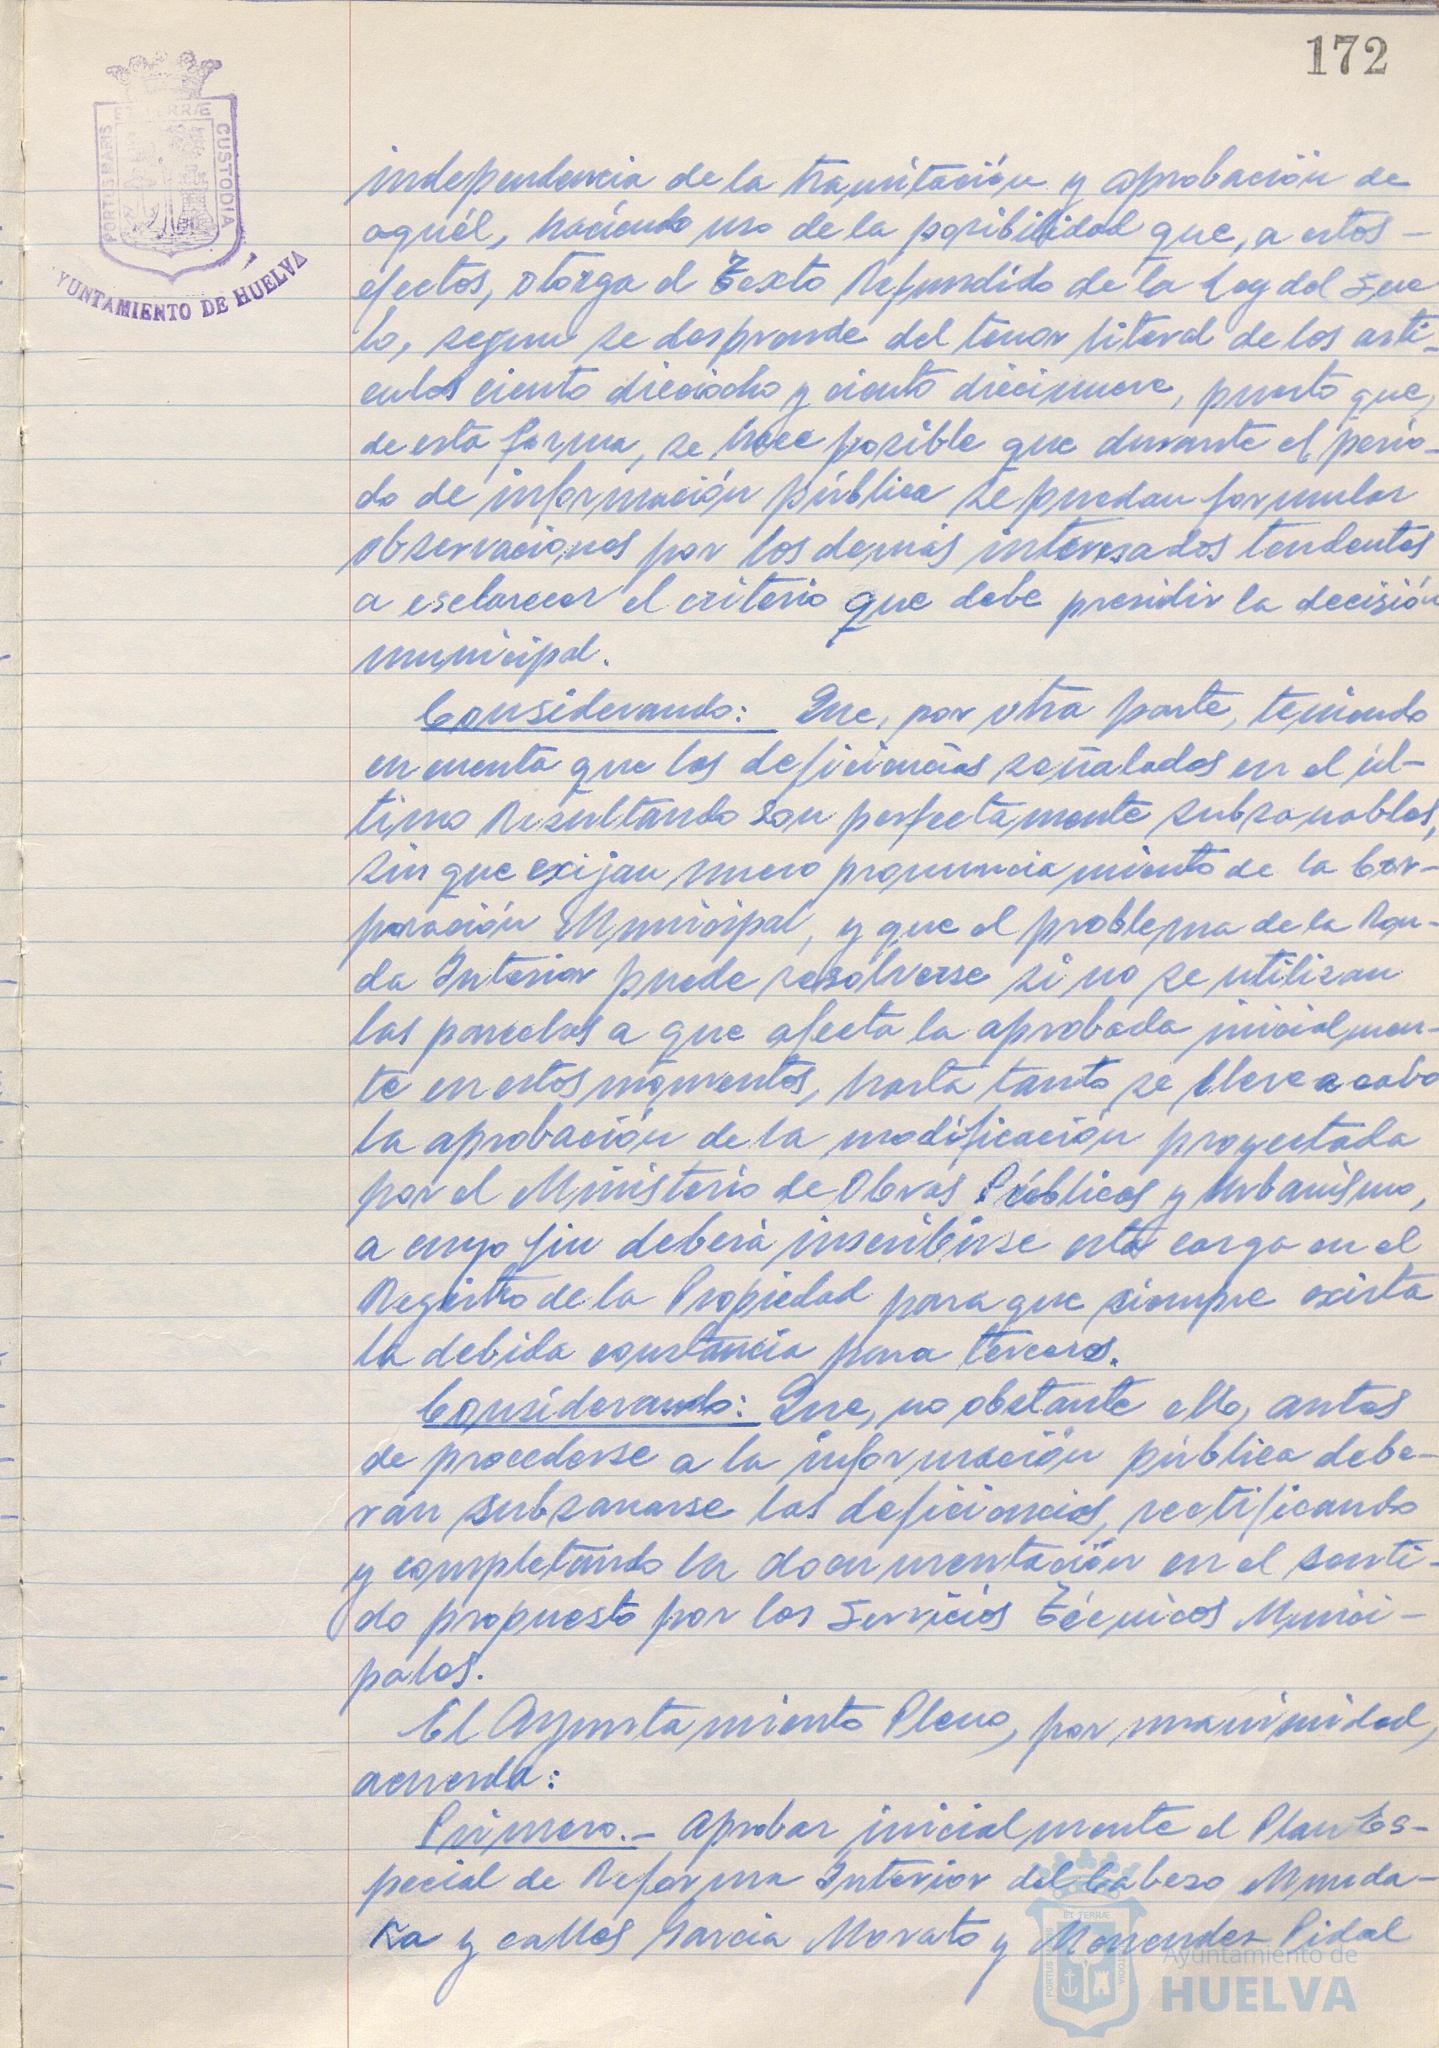 172
PORTUS MARIS ET TERRÆ CUSTODIA
AYUNTAMIENTO DE HUELVA
independencia de la tramitación y aprobación de
aquél, haciendo uso de la posibilidad que, a estos -
efectos, otorga el Texto Refundido de la Ley del Sue
lo, segun se desprende del tenor literal de los artí-
culos ciento dieciocho y ciento diecinueve, puesto que,
de esta forma, se hace posible que durante el perío-
do de información pública se puedan formular
observaciones por los demás interesados tendentes
a esclarecer el criterio que debe presidir la decisión
municipal.
Considerando: Que, por otra parte, teniendo
en cuenta que las deficiencias señaladas en el úl-
timo Resultando son perfectamente subsanables,
sin que exijan nuevo pronunciamiento de la Cor-
poración Municipal, y que el problema de la Ron-
da Interior puede resolverse si no se utilizan
las parcelas a que afecta la aprobada inicialmen-
te en estos momentos, hasta tanto se lleve a cabo
la aprobación de la modificación proyectada
por el Ministerio de Obras Públicas y Urbanismo,
a cuyo fin deberá inscribirse esta carga en el
Registro de la Propiedad para que siempre exista
la debida constancia para terceros.
Considerando: Que, no obstante ello, antes
de procederse a la información pública debe-
rán subsanarse las deficiencias, rectificando
y completando la documentación en el senti-
do propuesto por los Servicios Técnicos Munici-
pales.
El Ayuntamiento Pleno, por unanimidad,
acuerda:
Primero.- Aprobar inicialmente el Plan Es-
pecial de Reforma Interior del Cabezo Munda-
ka y calles Garcia Morato y Menendez Pidal
Ayuntamiento de
HUELVA